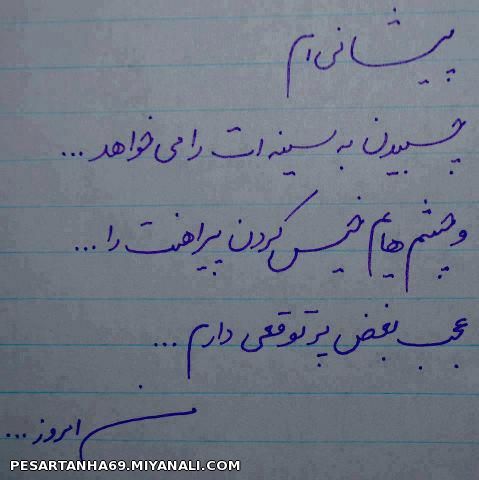 پیشانی ام
چسبیدن به سینه ات را می خواهد ...
و چشم هایم خیس کردن پیراهنت را ...
عجب بغض پر توقعی دارم ...
من امروز ...
PESARTANHA69.MIYANALI.COM